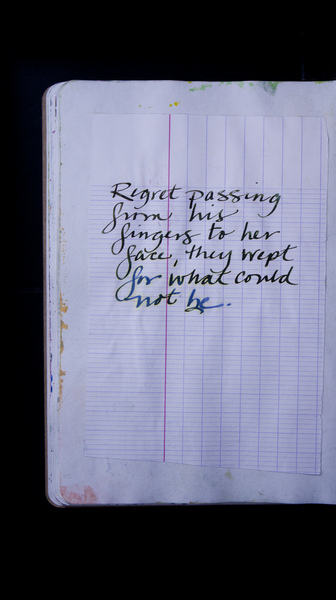 Regret passing
from his
fingers to her
face, they wept
for what could
not be.